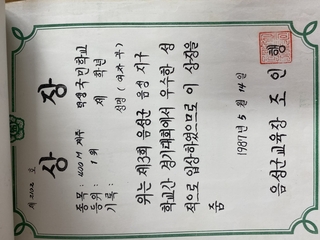 상 장
종목: 400 M 계주
등위: 1위 제 학년
기록: 성명 (여자부)
위는 음성군 음성 지구
학교간 경기대회에서 우수한 성
적으로 입상하였으므로 이 상장을
줌
1987년 5월 14일
음성군교육장 조 인 행